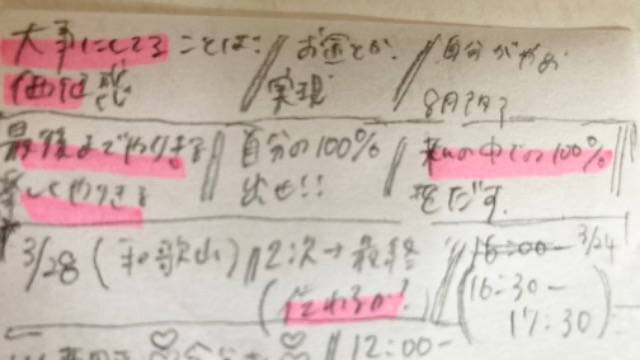 大事にしてることは？
価値感
お金とか
実現
自分がやめ
8月7月？
最後までやりきる
楽しくやりきる
自分の100%
出せ!!
私の中での100%
をだす。
3/28（和歌山）
2次→最終
16:00- 3/24
(16:30-
17:30)
12:00-